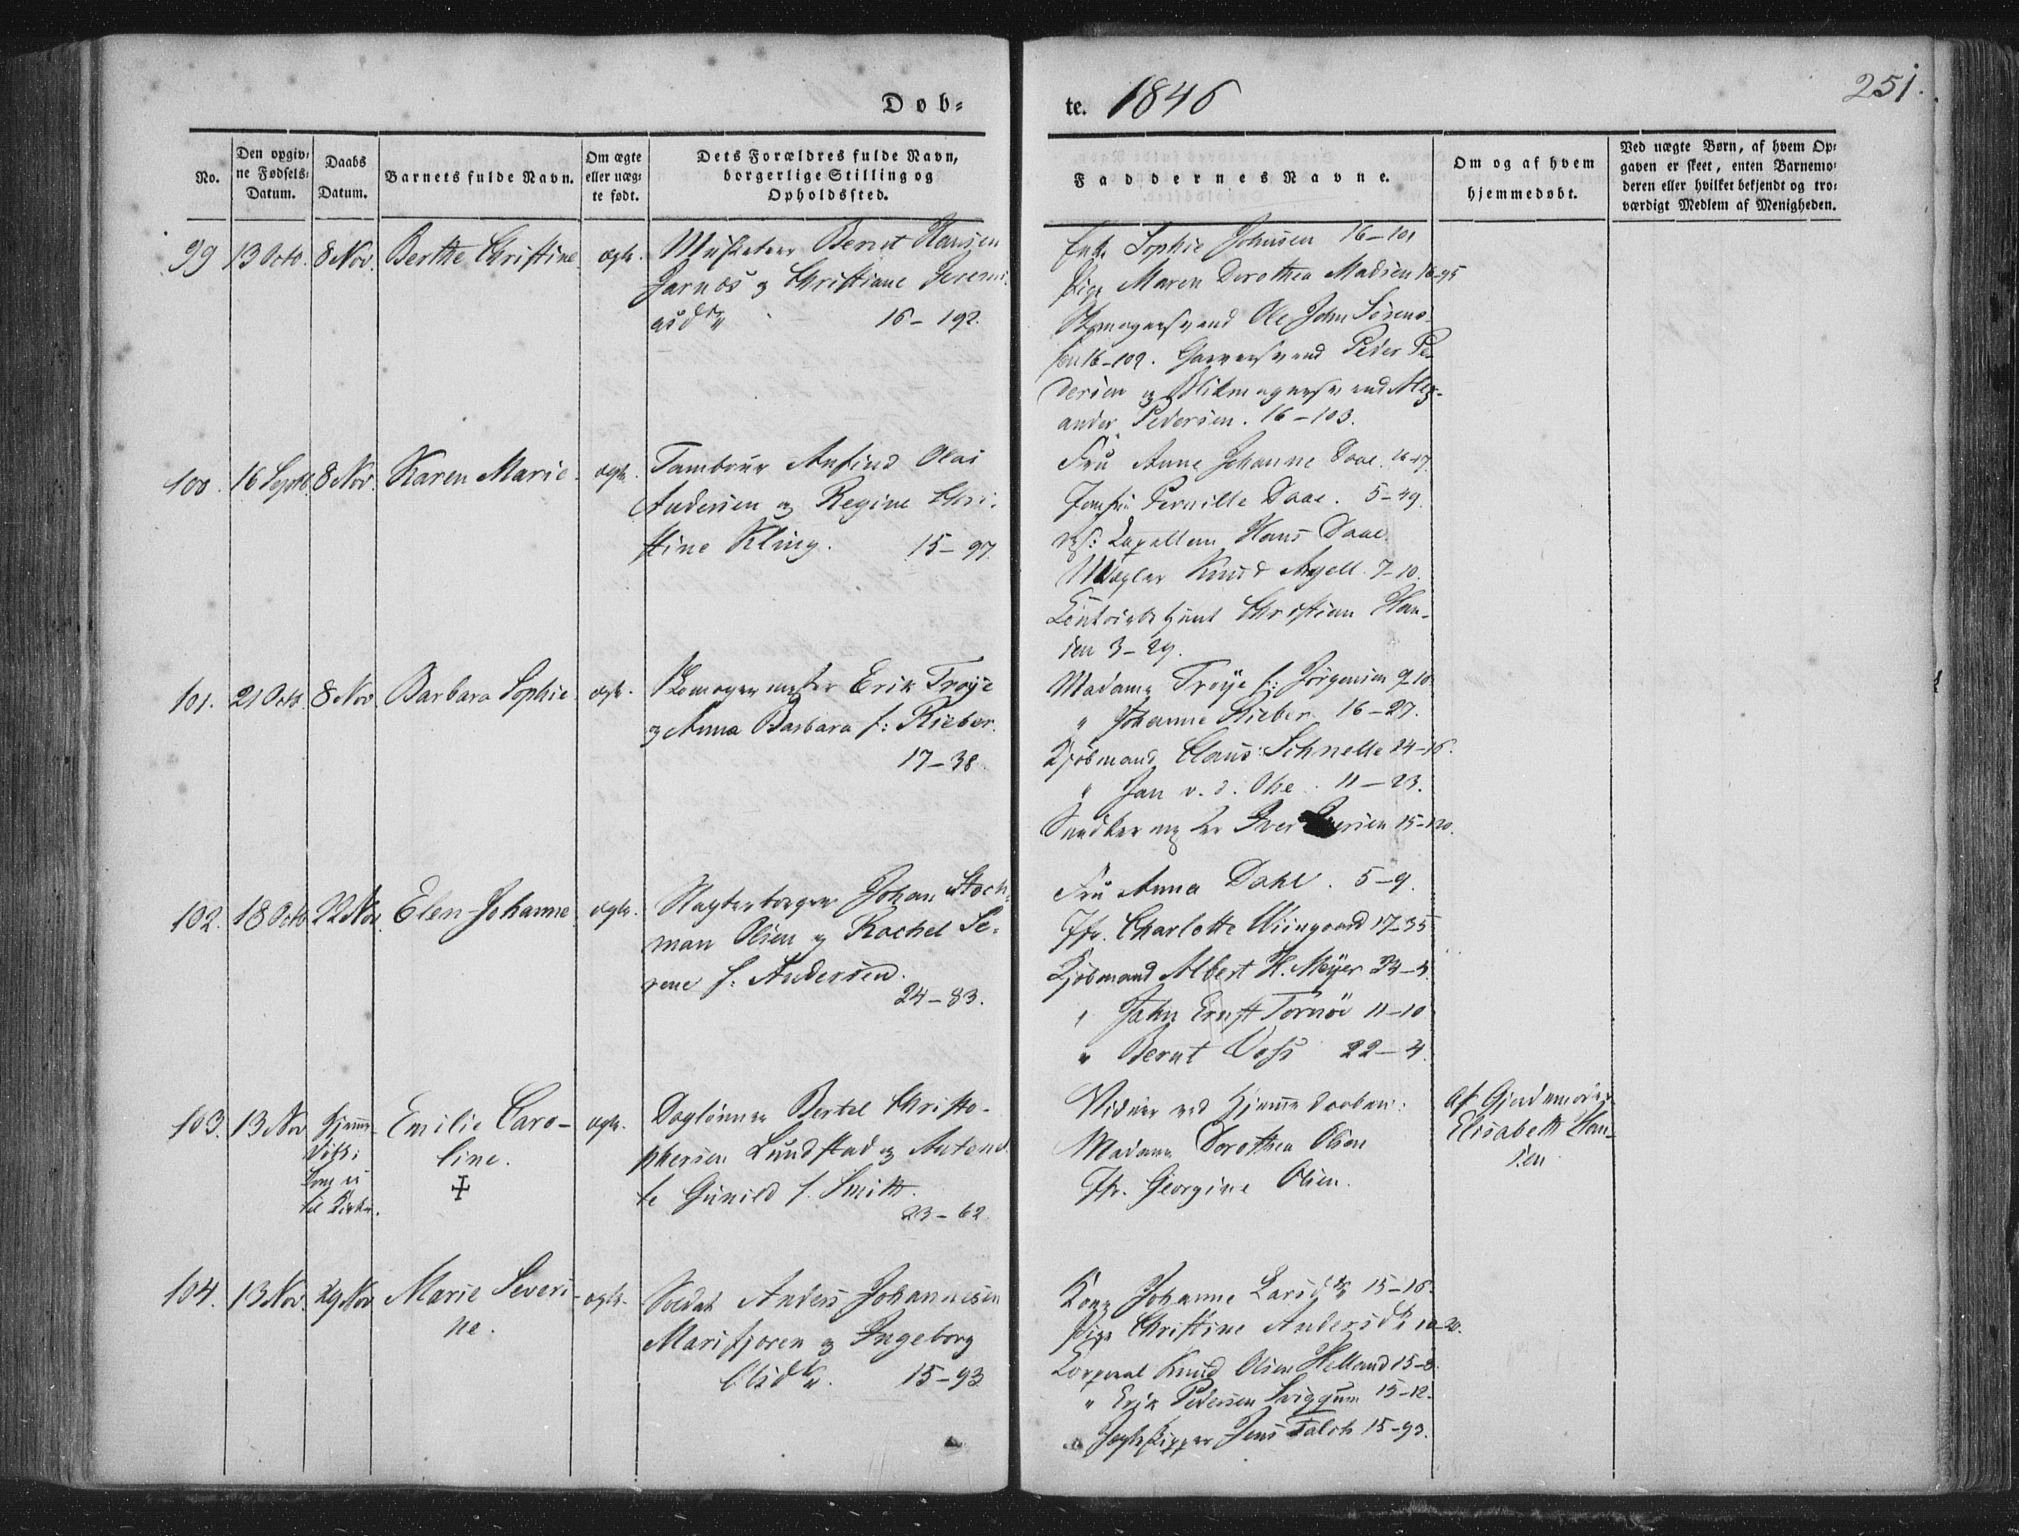 Døb-
te. 1846
251.
No.
Den opgiv-
ne Fødsels-
Datum.
Daabs
Datum.
Barnets fulde Navn.
Om ægte
eller uæg-
te født.
Dets Forældres fulde Navn,
borgerlige Stilling og
Opholdssted.
Faddernes Navne.
Om og af hvem
hjemmedøbt.
Ved uægte Børn, af hvem Op-
gaven er skeet, enten Barnemo-
deren eller hvilket bekjendt og tro-
værdigt Medlem af Menigheden.
99 13 Octo. 8 Nov. Berthe Christine ægte.
Musketeer Bernt Hansen
Jarnæs og Christiane Jeremi-
asdtr 16-192.
Enke Sophie Johnsen 16-101
Pige Maren Dorothea Madsen 16-95
Skomagersvend Ole John Sørens-
sen 16-109. Garversvend Peder Pe-
dersen og Blikmagersvend Alex-
ander Pedersen. 16-103.
100. 16 Septb. 8 Nov. Karen Marie ægte.
Tambour Anfind Olai
Andersen og Regine Chri-
stine Kling. 15-97.
Fru Anne Johanne Daae.
Jomfru Pernille Daae. 5-49.
Kapellan Hans Daae.
Mægler Knud Angell 7-10.
Contoirbetjent Christian Han-
sen 3-29.
101. 21 Octo. 8 Nov. Barbara Sophie ægte.
Skomagermester Erik Troye
og Anna Barbara f: Rieber.
17-38.
Madame Troye f: Jørgensen 9-10
" Johanne Rieber 16-27.
Kjøbmand Claus Schnelle 24-16.
" Jan v. d. Ohe. 11-23.
Snedkermester Iver Iversen 15-120.
102. 18 Octo 22 Nov. Elen Johanne ægte.
Slagterborger Johan Stoch-
man Olsen og Rachel Se-
rene f: Andersen.
24-83.
Fru Anna Dahl. 5-9.
Jfr. Charlotte Wiingaard 17-35
Kjøbmand Albert H. Meyer 23-4.
" John Ernst Tornøe 11-10
" Bernt Voss 22-4.
103. 13 Nov. Hjemme-
døbt;
kom ei
til Kirke.
Emilie Caro-
line.
ægte.
Dagleiner Bertel Christo-
phersen Lundstad og Antonet-
te Gunild f. Smith.
23-62.
Vidner ved Hjemmedaaben:
Madame Dorothea Olsen
Jfr. Georgine Olsen.
af Gjordemoder
Elisabeth Han-
sen.
104. 13 Nov. 29 Nov Marie Severi-
ne.
ægte.
Soldat Anders Johannesen
Marifjæren og Ingeborg
Olsdtr. 15-93
Kone Johanne Larsdtr 15-16.
Pige Christine Andersdtr 10-20.
Corporal Knud Olsen Helland 15-3.
" Erik Pedersen Sviggum 15-12.
Jagtskipper Jens Falch 15-93.